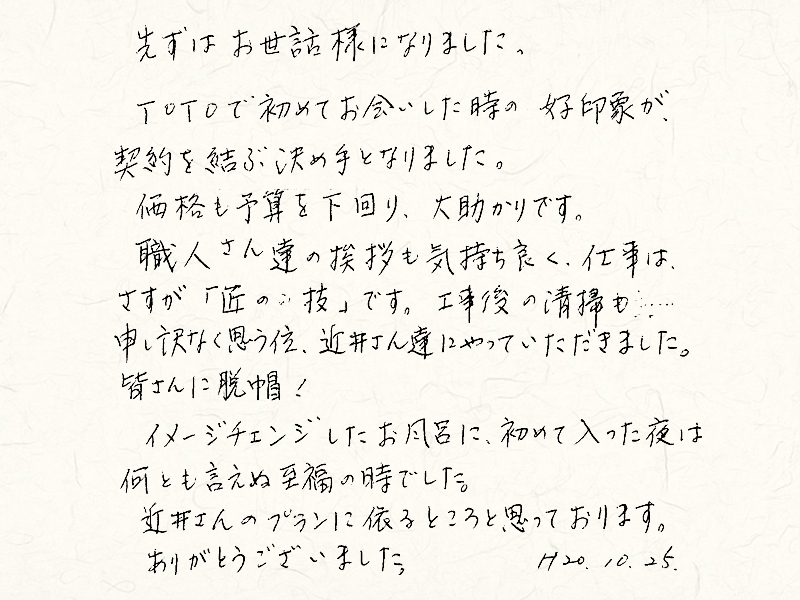 先ずは お世話様になりました。
TOTOで初めてお会いした時の 好印象が、
契約を結ぶ決め手となりました。
価格も予算を下回り、大助かりです。
職人さん達の挨拶も気持ち良く、仕事は、
さすが「匠の 技」です。工事後の清掃も……
申し訳なく思う位、近井さん達にやっていただきました。
皆さんに脱帽！
イメージチェンジしたお風呂に、初めて入った夜は
何とも言えぬ至福の時でした。
近井さんのプランに依るところと思っております。
ありがとうございました。 H20.10.25.